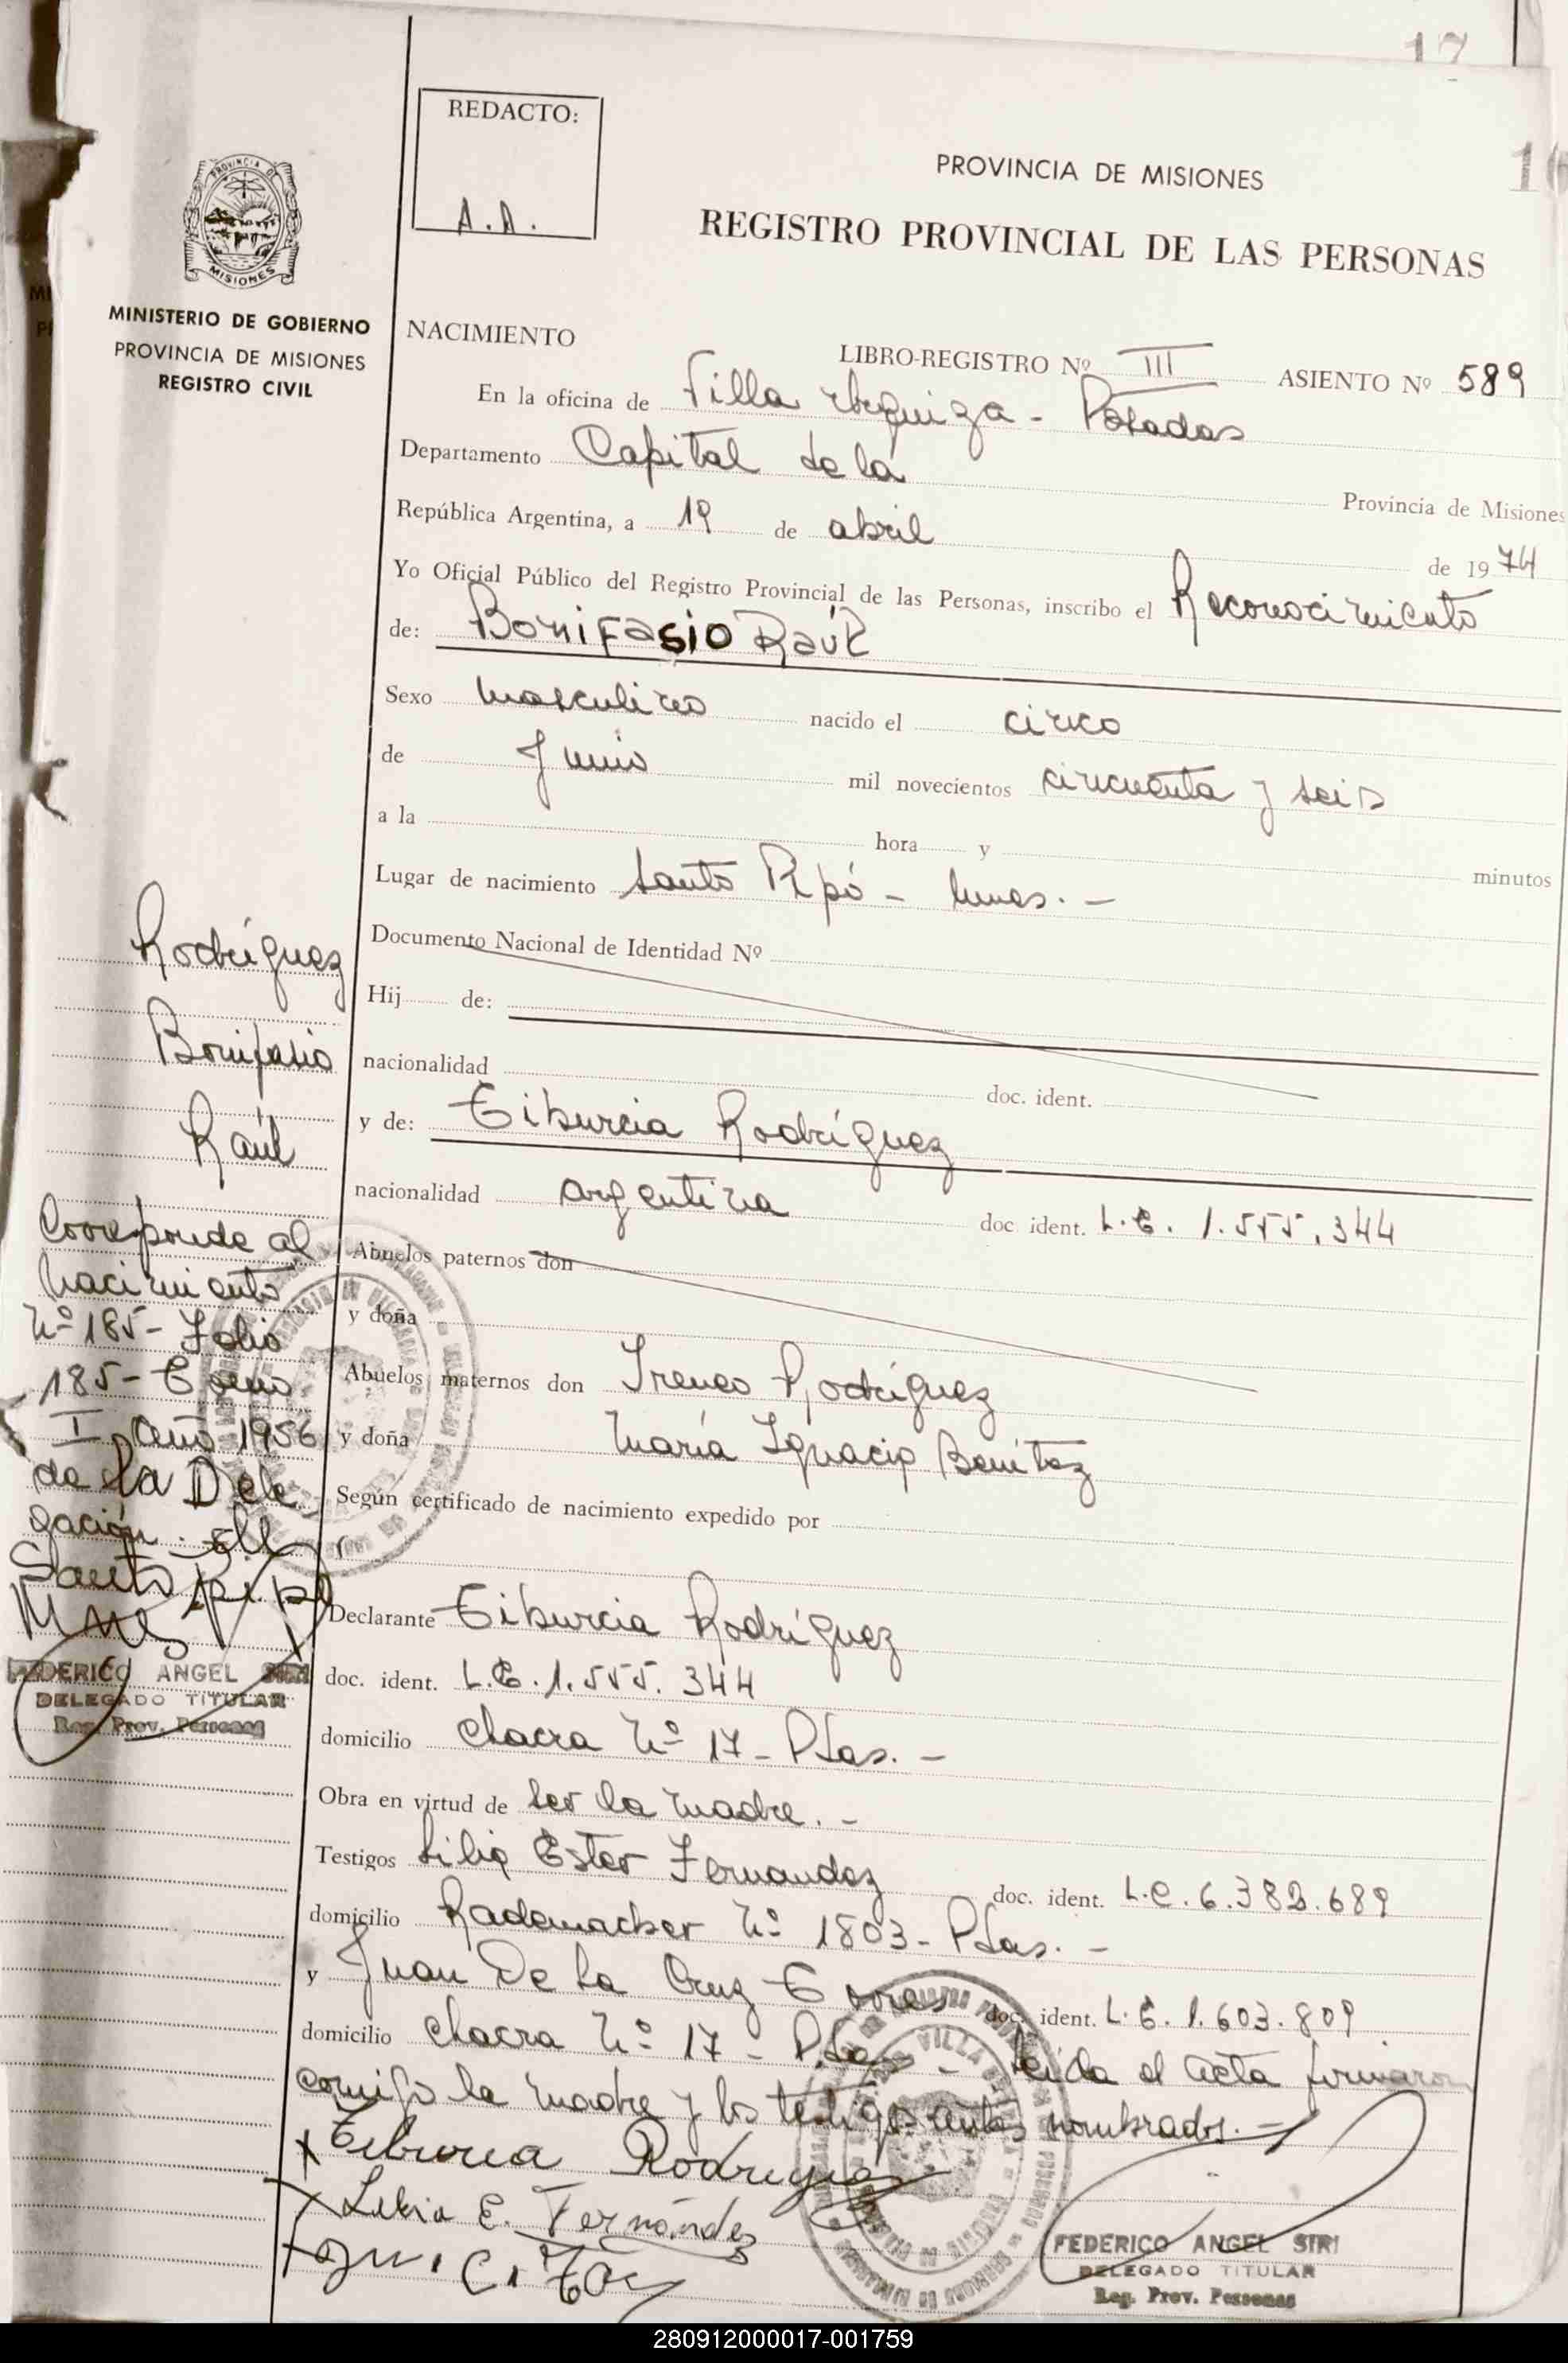 17
16
REDACTO:
A.A.
PROVINCIA DE MISIONES
REGISTRO PROVINCIAL DE LAS PERSONAS
PROVINCIA DE MISIONES
MINISTERIO DE GOBIERNO
PROVINCIA DE MISIONES
REGISTRO CIVIL
NACIMIENTO
LIBRO-REGISTRO Nº III ASIENTO Nº 589
En la oficina de Villa Urquiza - Posadas
Departamento Capital de la Provincia de Misiones
República Argentina, a 19 de abril de 1974
Yo Oficial Público del Registro Provincial de las Personas, inscribo el Reconocimiento
de: Bonifasio Raúl
Sexo masculino nacido el cinco
de Junio mil novecientos cincuenta y seis
a la hora y minutos
Lugar de nacimiento Santo Pipó - Mnes. -
Documento Nacional de Identidad Nº
Hij de:
nacionalidad doc. ident.
y de: Tiburcia Rodríguez
nacionalidad argentina doc. ident. L.C. 1.555.344
Abuelos paternos don
y doña
Abuelos maternos don Ireneo Rodríguez
y doña María Ignacia Benítez
Según certificado de nacimiento expedido por
Declarante Tiburcia Rodríguez
doc. ident. L.C. 1.555.344
domicilio Chacra Nº 17 - Pdas. -
Obra en virtud de ser la madre. -
Testigos Lilia Ester Fernandez doc. ident. L.C. 6.382.689
domicilio Rademacher Nº 1803 - Pdas. -
y Juan De La Cruz Torres doc. ident. L.E. 1.603.809
domicilio Chacra Nº 17 - Pdas - Leída el acta firmaron
conmigo la madre y los testigos antes nombrados. -
Tiburcia Rodriguez
Lilia E. Fernández
FEDERICO ANGEL SIRI
DELEGADO TITULAR
Reg. Prov. Personas
Rodríguez
Bonifasio
Raúl
Corresponde al
Nacimiento
Nº 185 - Folio
185 - Tomo
I - año 1956
de la Dele
gación
Santo Pipó
Mnes
FEDERICO ANGEL SIRI
DELEGADO TITULAR
Reg. Prov. Personas
280912000017-001759